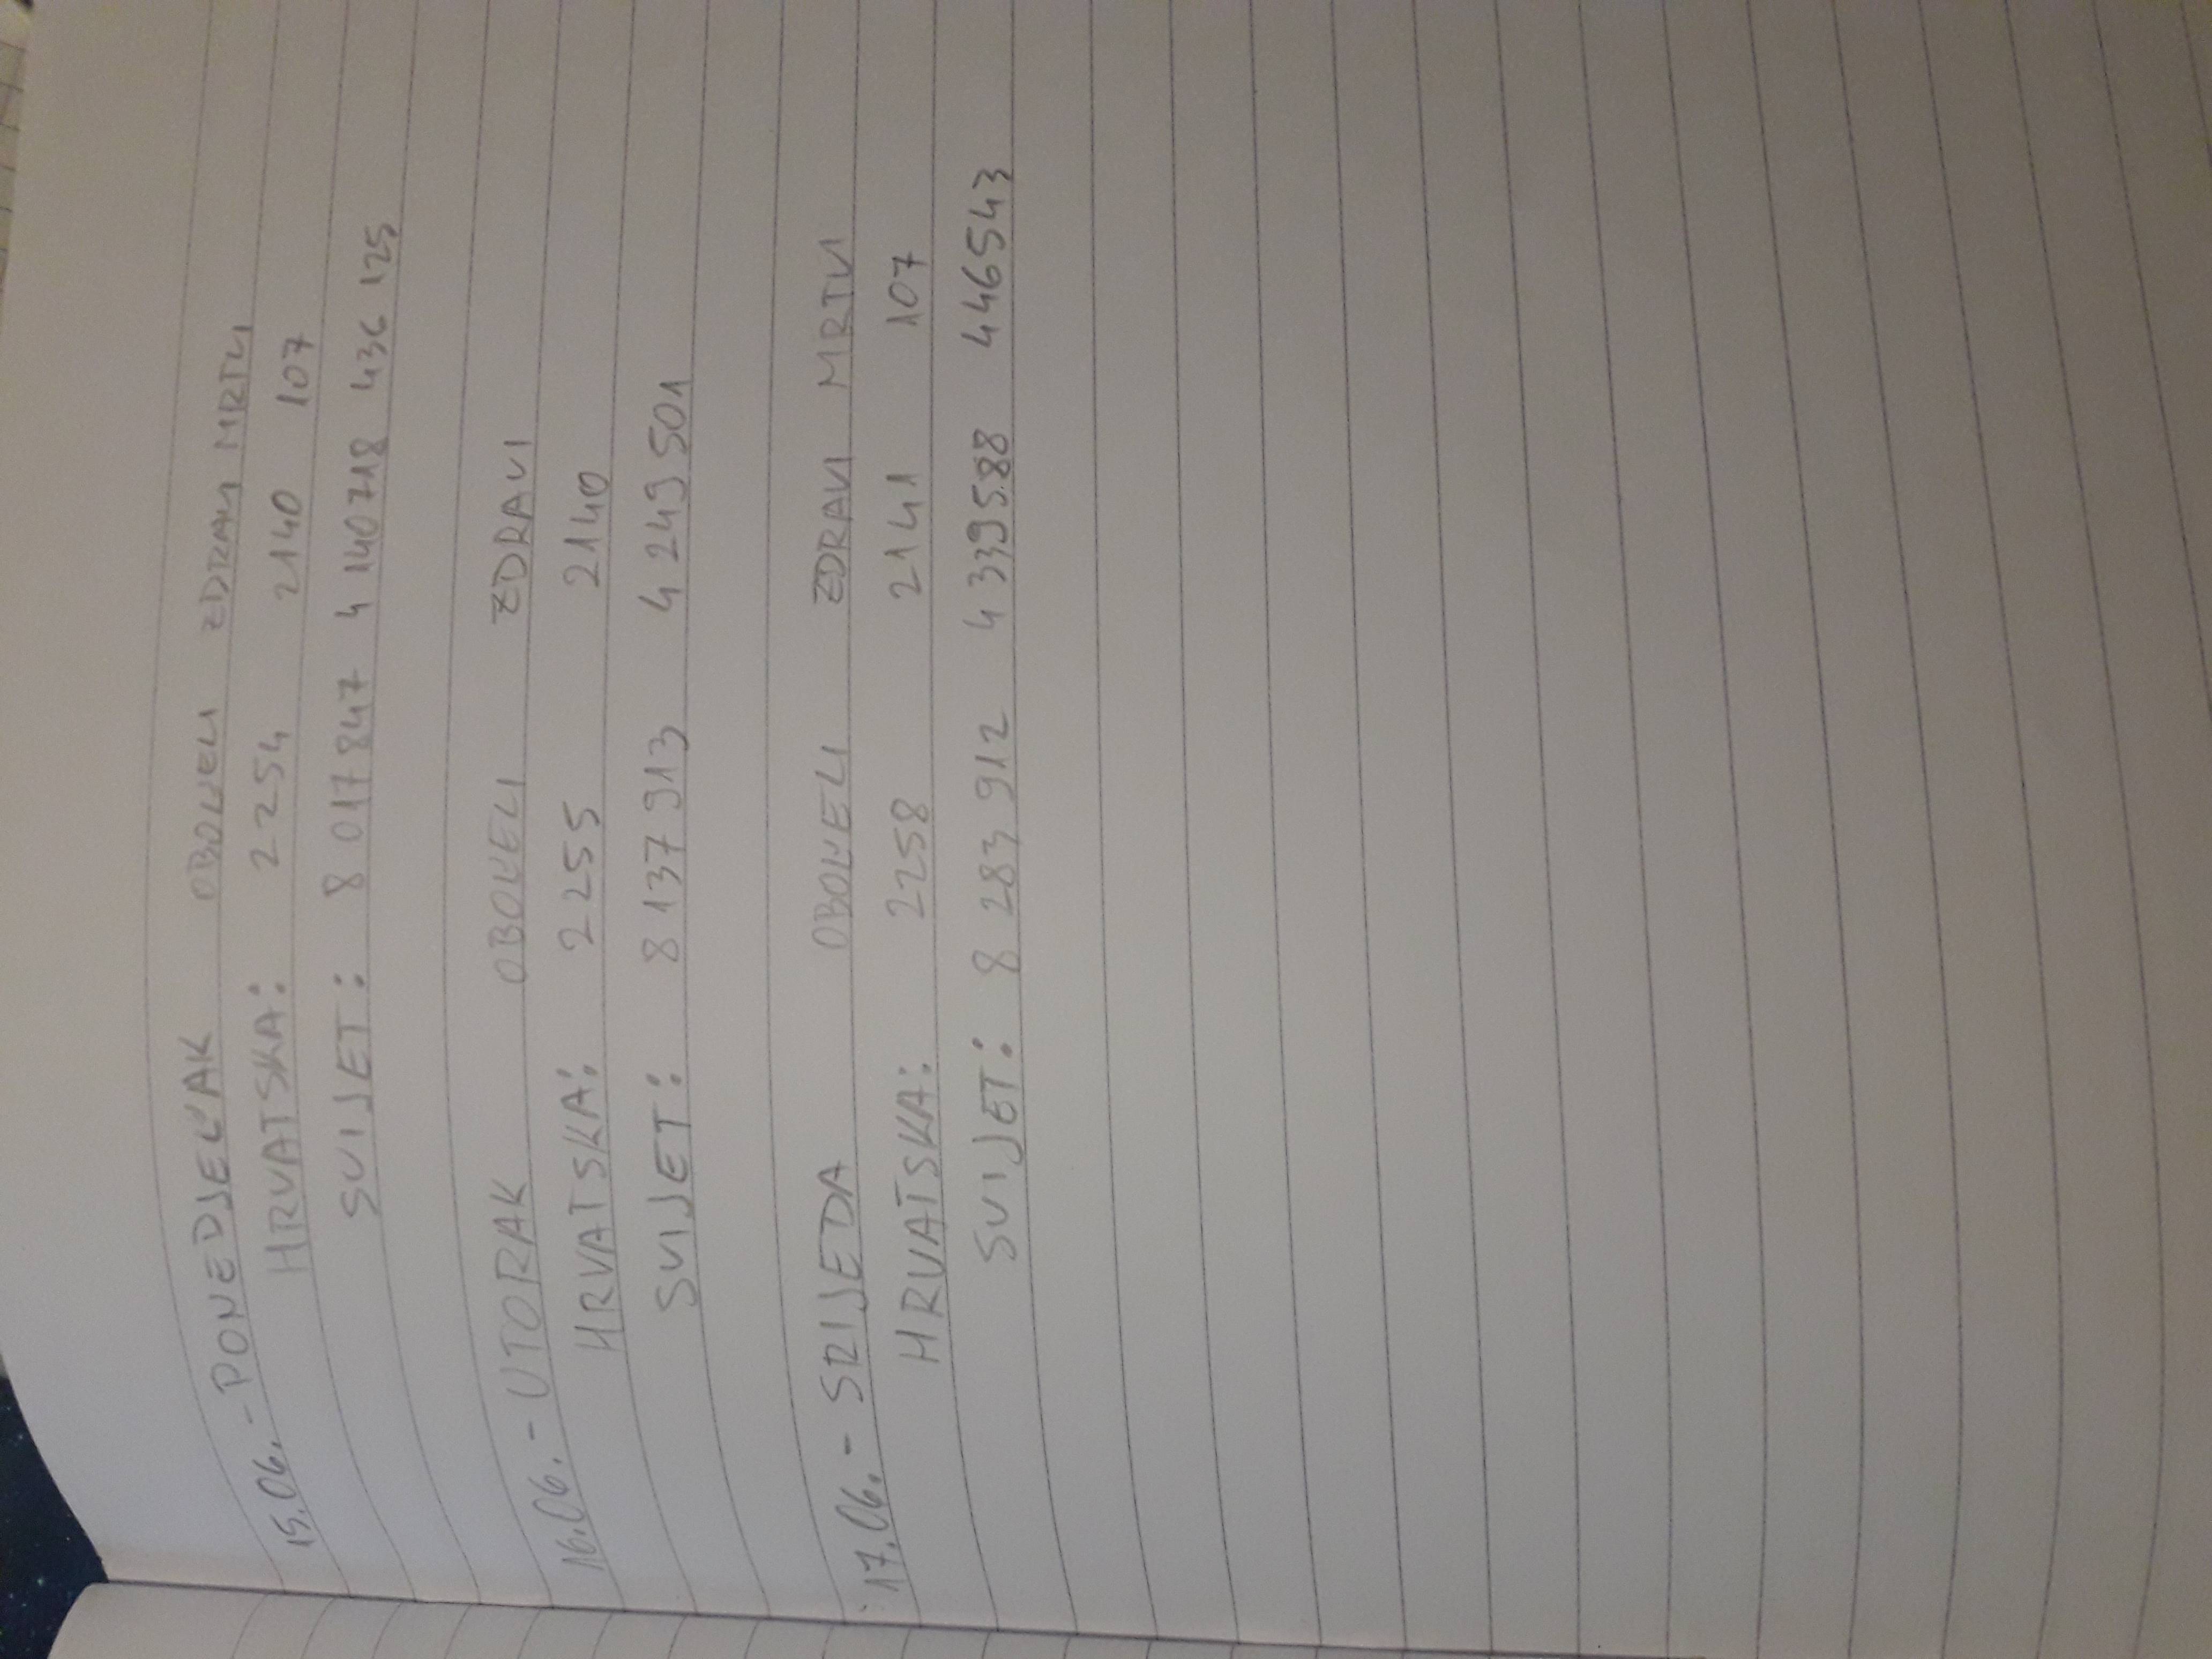 15.06. - PONEDJELJAK OBOLJELI ZDRAVI MRTVI
HRVATSKA: 2254 2140 107
SVIJET: 8 017 847 4 140 718 436 125
16.06. - UTORAK OBOLJELI ZDRAVI
HRVATSKA: 2255 2140
SVIJET: 8 137 913 4 249 501
17.06. - SRIJEDA OBOLJELI ZDRAVI MRTVI
HRVATSKA: 2258 2141 107
SVIJET: 8 283 912 4 339588 446543